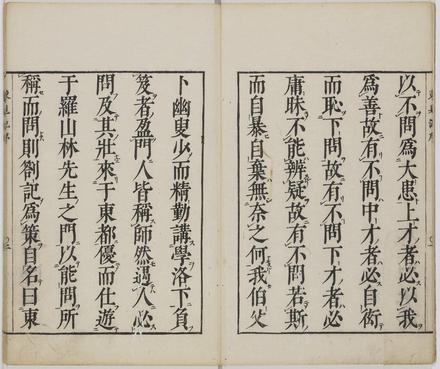 以不問爲大患上才者必以我
爲善故有不問中才者必自衒
而恥下問故有不問下才者必
庸昧不能辨疑故有不問若斯
而自暴自棄無奈之何我伯父
卜幽叟少而精勤講學洛下負
笈者盈門人皆稱師然遇人必
問及其壯來于東都優而仕遊
于羅山林先生之門以能問所
稱而問則劄記爲策自名曰東